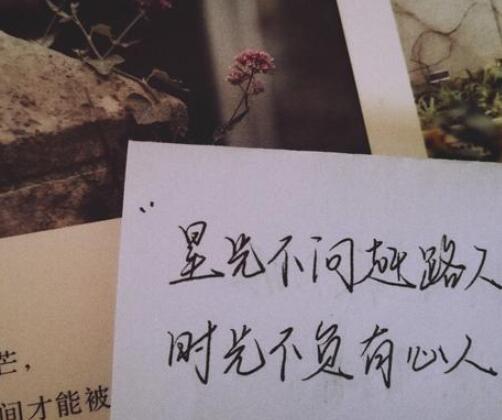 “星光不问赶路人
时光不负有心人
芒，
间才能被